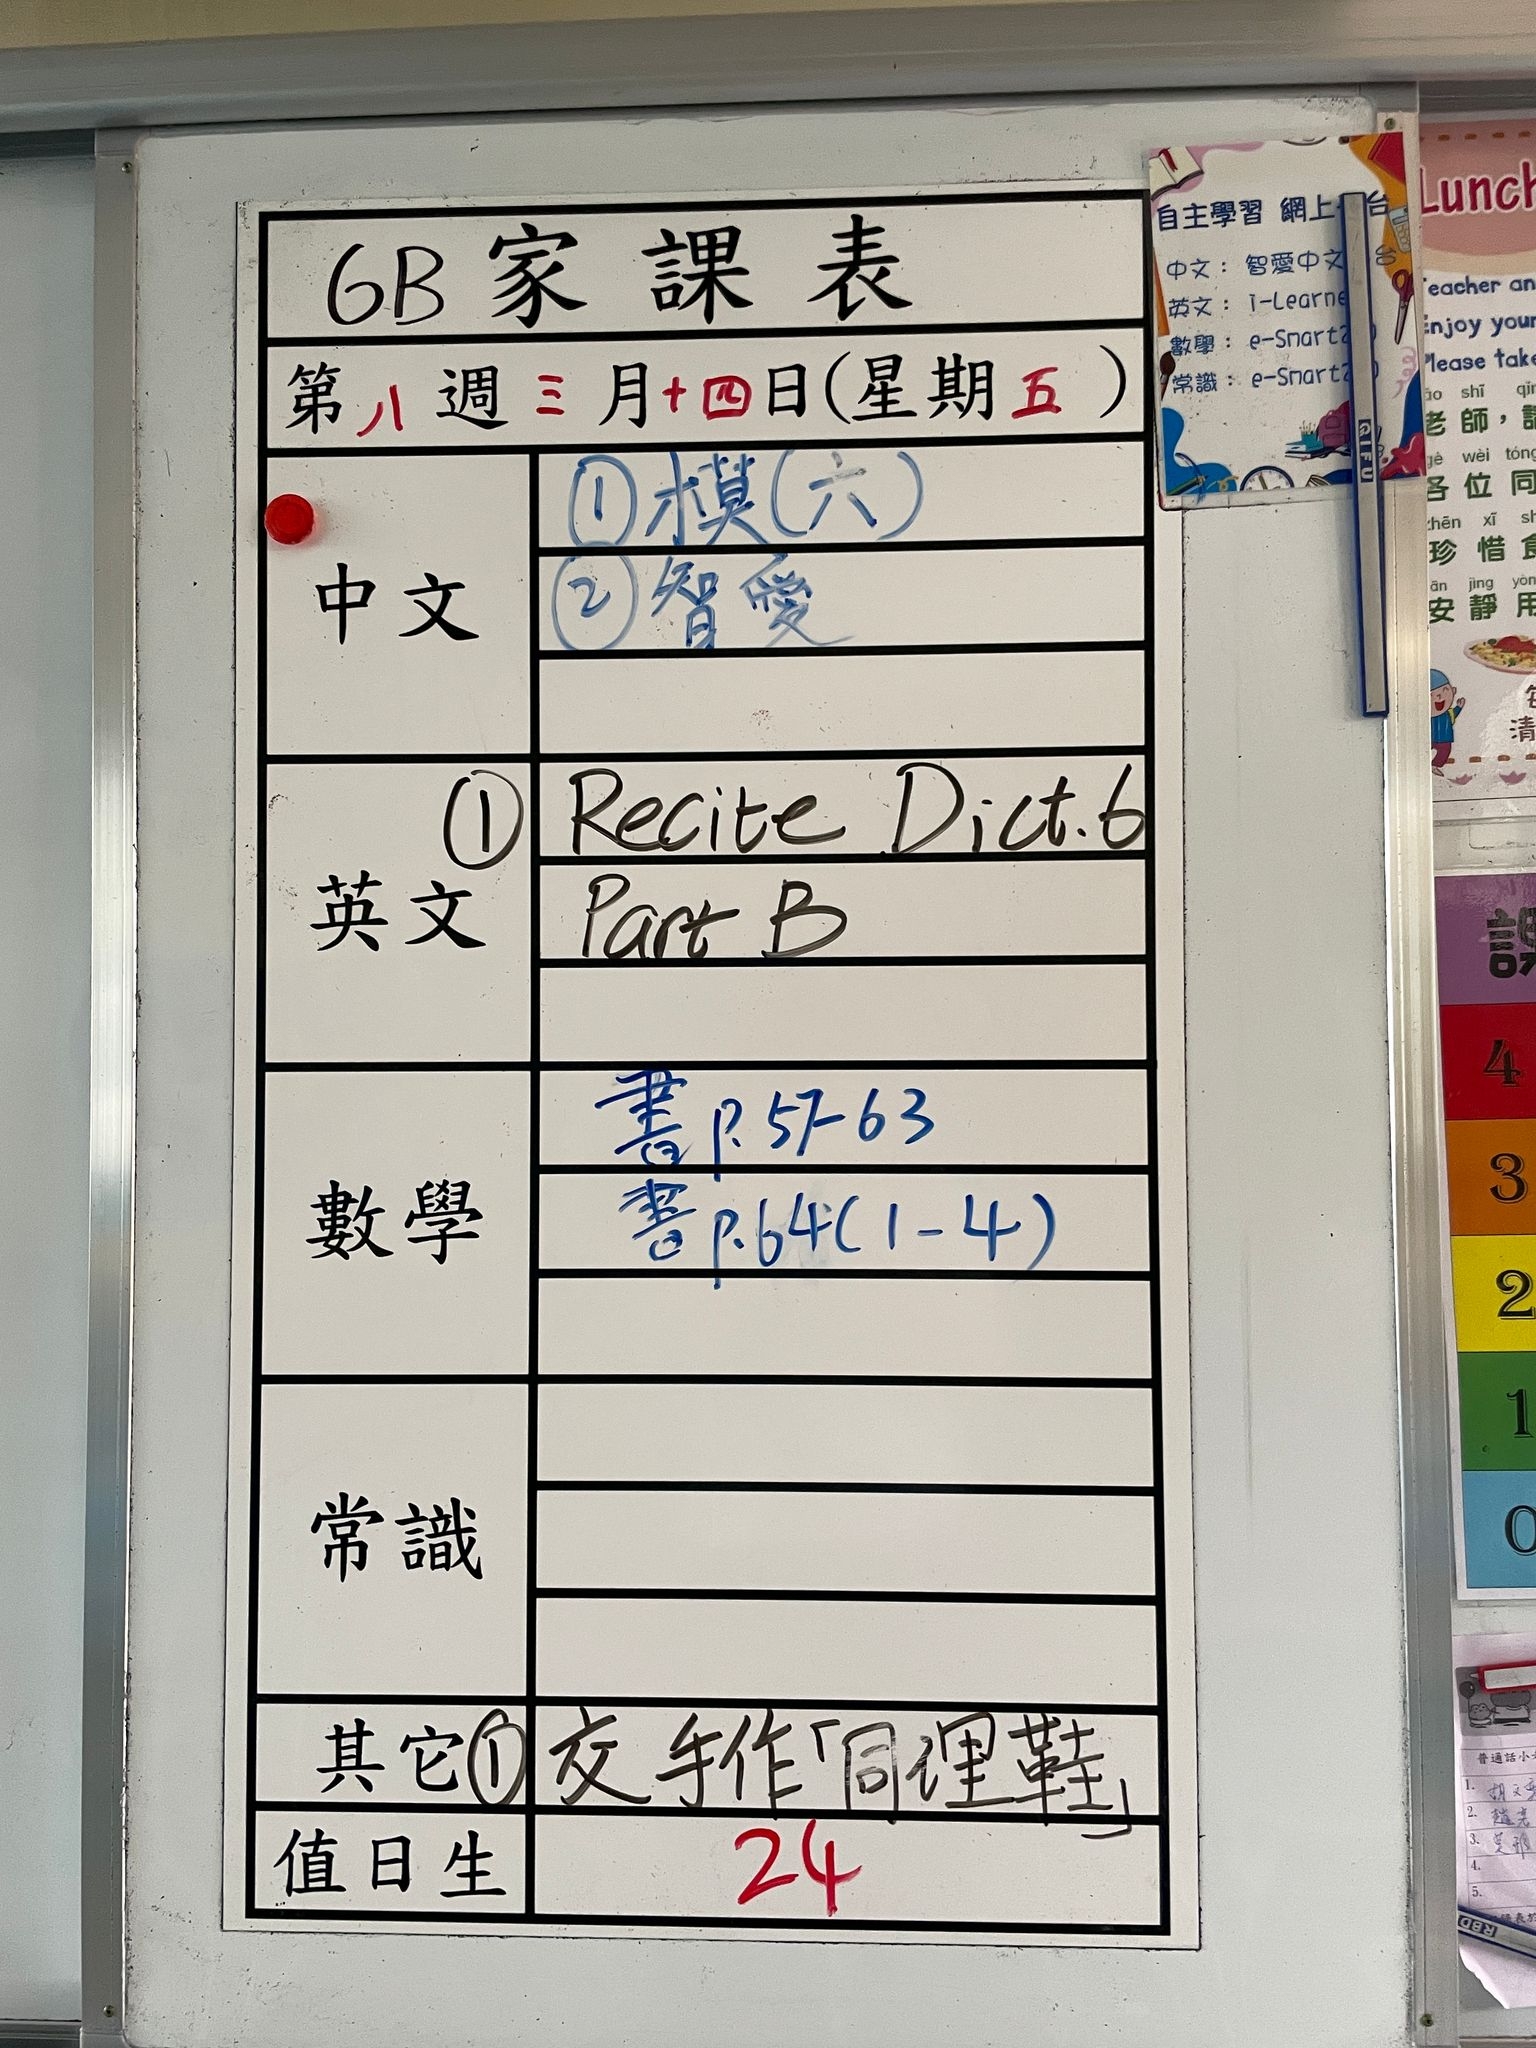 6B 家課表
第八週三月十四日(星期五)
中文
①模(六)
②智愛
英文
① Recite Dict.6
Part B
數學
書 p.57-63
書 p.64(1-4)
常識
其它
①交手作「同理鞋」
值日生
24
自主學習 網上 台
中文: 智愛中文 台
英文: i-Learne
數學: e-Smart
常識: e-Smart
GIFU
Lunch
Teacher an
Enjoy your
Please take
shī
老師,
gè wèi tóng
各位同
zhēn xī
珍惜食
ān jìng yòn
安靜用
清
課
4
3
2
1
0
普通話小
1.
2.
3.
4.
5.